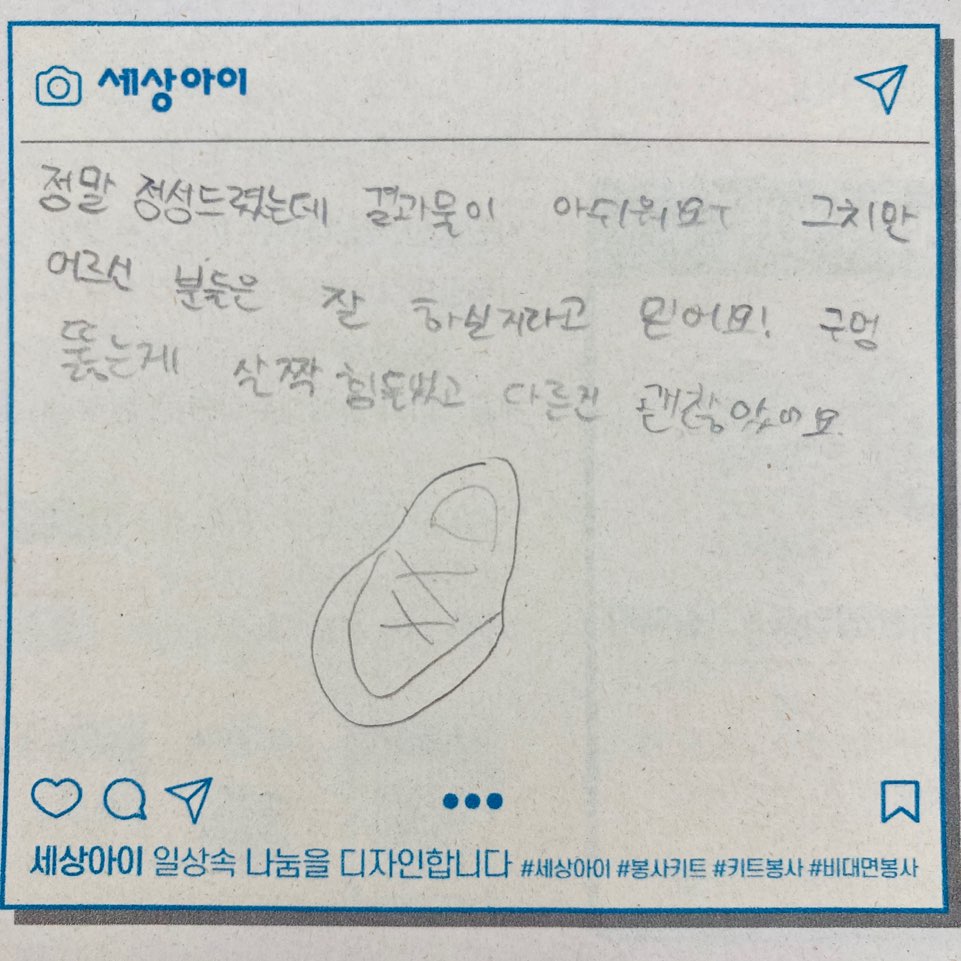 세상아이
정말 정성드렸는데 결과물이 아쉬워요ㅜ 그치만
어르신 분들은 잘 하실지라고 믿어요! 구멍
뚫는게 살짝 힘들었고 다른건 괜찮았어요.
세상아이 일상속 나눔을 디자인합니다 #세상아이 #봉사키트 #키트봉사 #비대면봉사